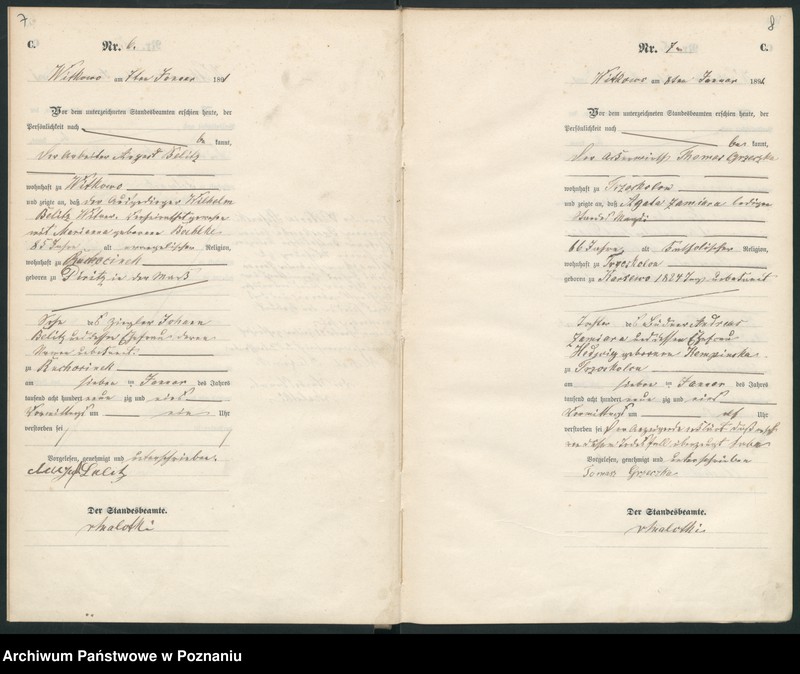 7
C.
Nr. 6.
Witkowo am 8ten Januar 1891
Vor dem unterzeichneten Standesbeamten erschien heute, der
Persönlichkeit nach
be kannt,
Der Arbeiter August Belitz
wohnhaft zu Witkowo
und zeigte an, daß der Ausgedinger Wilhelm
Belitz Witwer
mit Marianna geborene
85 Jahre alt evangelischer Religion,
wohnhaft zu Ruchocinek
geboren zu in der Mark
Sohn des Ziegler Johann
Belitz und dessen Ehefrau deren
Namen unbekannt
zu Ruchocinek
am sieben ten Januar des Jahres
tausend acht hundert neun zig und eins
Vormittags um ein Uhr
verstorben sei
Vorgelesen, genehmigt und unterschrieben.
August
Der Standesbeamte.
8
Nr. 7
C.
Witkowo am 8ten Januar 1891
Vor dem unterzeichneten Standesbeamten erschien heute, der
Persönlichkeit nach
be kannt,
Der Ackerwirth Thomas Grzeczka
wohnhaft zu Trzoskolon
und zeigte an, daß Agata Jamiara ledigen
Standes
66 Jahre alt katholischer Religion,
wohnhaft zu Trzoskolon
geboren zu 1824 Tag unbekannt
Tochter des Büdner Andreas
Jamiara und dessen Ehefrau
Hedwig geborenen Kempinska
zu Trzoskolon
am sieben ten Januar des Jahres
tausend acht hundert neun zig und eins
Vormittags um elf Uhr
verstorben sei
Vorgelesen, genehmigt und unterschrieben
Tomas Grzeczka
Der Standesbeamte.
Archiwum Państwowe w Poznaniu